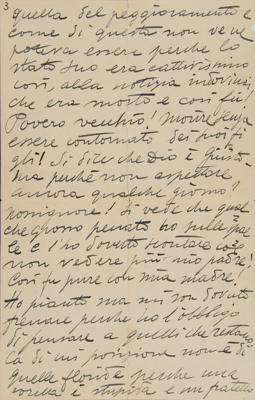 3
quella del peggioramento e
come di questa non ve ne
poteva essere perche lo
stato suo era cattivissimo
così, alla notizia indovinai
che era morto e così fu!
Povero vecchio! morire senza
essere contornato dei suoi fi
gli! Si dice che Dio è giusto
ma perchè non aspettare
ancora qualche giorno?
nossignore! Si vede che qual
che grosso peccato ho sulle spal
le e l'ho dovuto scontare col
non vedere più mio padre!
Così fu pure con mia madre.
Ho pianto ma mi son dovuto
frenare perche ho l'obbligo
di pensare a quelli che restano
La di cui posizione non è di
quelle floride perche una
sorella è stupida e un fratello